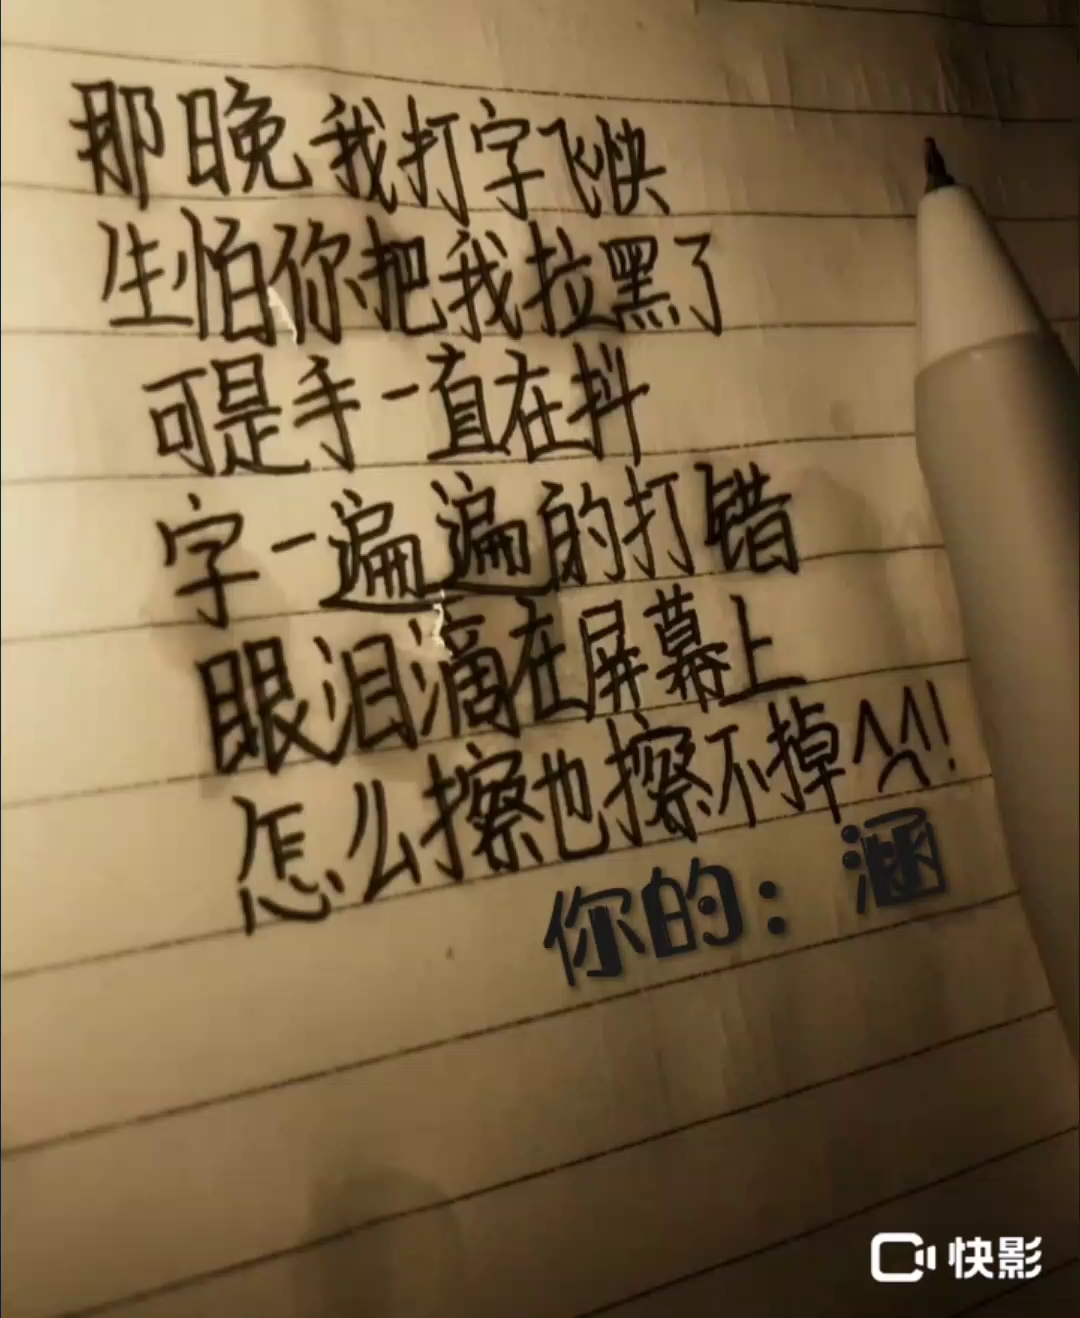 那晚我打字飞快
生怕你把我拉黑了
可是手一直在抖
字一遍遍的打错
眼泪滴在屏幕上
怎么擦也擦不掉^^!
你的：涵
快影